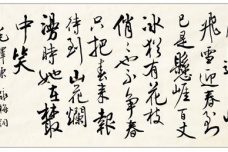 飛雪迎春到
已是懸崖百丈
冰猶有花枝
俏俏也不爭春
只把春來報
待到山花爛
漫時她在叢
中笑
毛澤東 詠梅詞